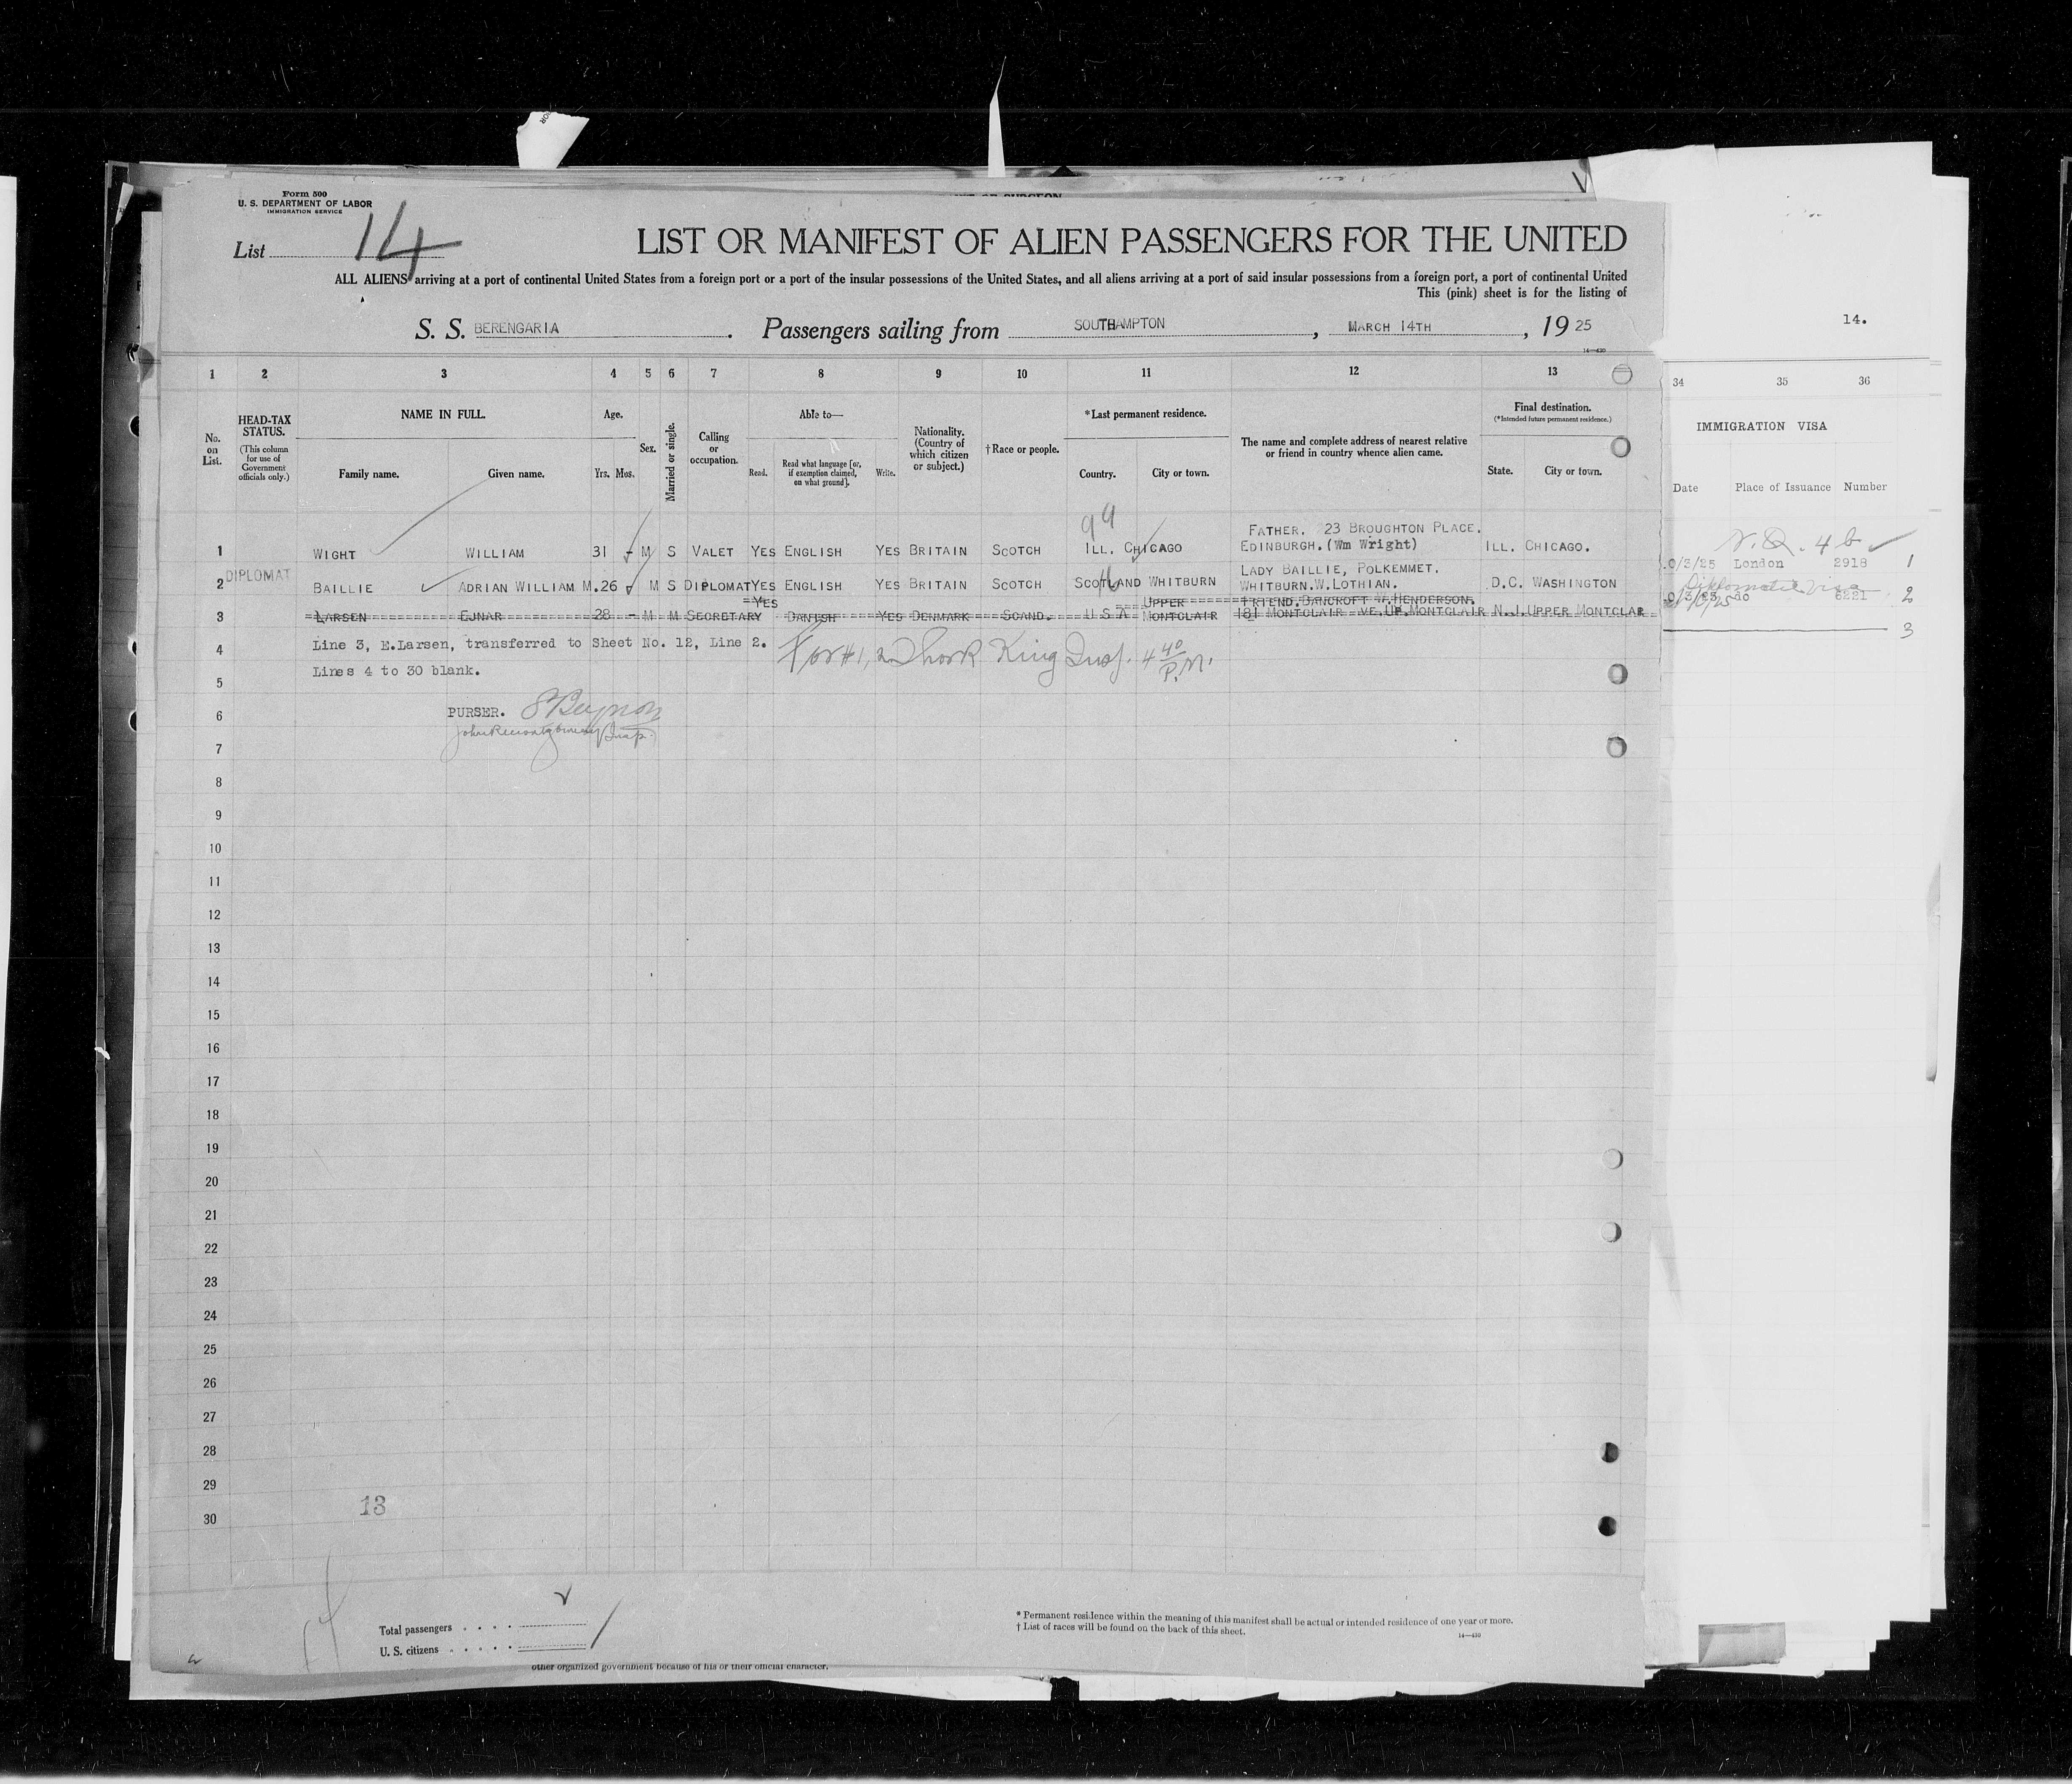 Form 500
U. S. DEPARTMENT OF LABOR
IMMIGRATION SERVICE
List 14
LIST OR MANIFEST OF ALIEN PASSENGERS FOR THE UNITED
ALL ALIENS arriving at a port of continental United States from a foreign port or a port of the insular possessions of the United States, and all aliens arriving at a port of said insular possessions from a foreign port, a port of continental United
This (pink) sheet is for the listing of
S. S. BERENGARIA. Passengers sailing from SOUTHAMPTON, MARCH 14TH, 1925
14—430
14.
1 2 3 4 5 6 7 8 9 10 11 12 13 34 35 36
No. on List.
HEAD-TAX STATUS.
(This column for use of Government officials only.)
NAME IN FULL.
Family name. Given name.
Age.
Yrs. Mos.
Sex.
Married or single.
Calling or occupation.
Able to—
Read. Read what language [or, if exemption claimed, on what ground]. Write.
Nationality. (Country of which citizen or subject.)
†Race or people.
*Last permanent residence.
Country. City or town.
The name and complete address of nearest relative or friend in country whence alien came.
Final destination.
(*Intended future permanent residence.)
State. City or town.
IMMIGRATION VISA
Date Place of Issuance Number
99
FATHER. 23 BROUGHTON PLACE.
1 WIGHT WILLIAM 31 - M S VALET YES ENGLISH YES BRITAIN SCOTCH ILL. CHICAGO EDINBURGH.(Wm Wright) ILL. CHICAGO.
4 b
0/3/25 London 2918 1
DIPLOMAT
LADY BAILLIE, POLKEMMET.
2 BAILLIE ADRIAN WILLIAM M. 26 M S DIPLOMAT YES ENGLISH YES BRITAIN SCOTCH SCOTLAND WHITBURN WHITBURN.W.LOTHIAN. D.C. WASHINGTON
Diplomatic Visa
do 6221 2
YES UPPER FRIEND.BANCROFT W.HENDERSON.
3 LARSEN EJNAR 28 - M M SECRETARY DANISH YES DENMARK SCAND. U S A MONTCLAIR 181 MONTCLAIR VE.UP.MONTCLAIR N.J.UPPER MONTCLAR
3
4 Line 3, E.Larsen, transferred to Sheet No. 12, Line 2.
King Insp. 4 40 P.M.
Lines 4 to 30 blank.
5
6 PURSER.
Insp.
7
8
9
10
11
12
13
14
15
16
17
18
19
20
21
22
23
24
25
26
27
28
29
13
30
Total passengers
U. S. citizens
* Permanent residence within the meaning of this manifest shall be actual or intended residence of one year or more.
† List of races will be found on the back of this sheet.
14—430
other organized government because of his or their official character.